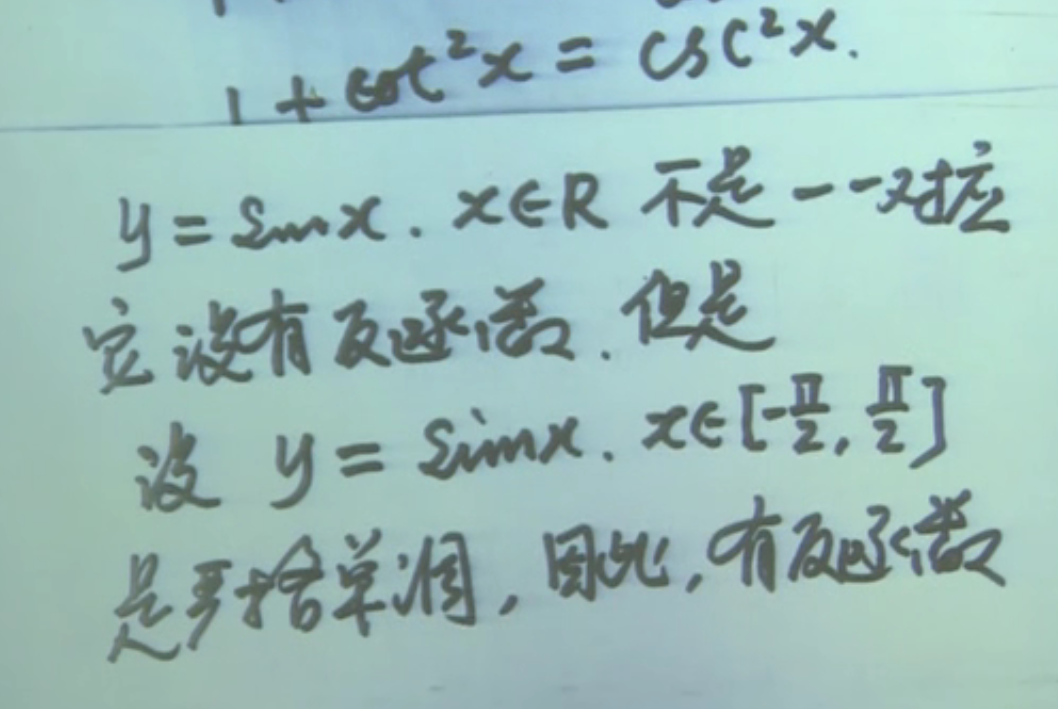 1 + cot²x = csc²x.
y = sinx. x∈R 不是一一对应
它没有反函数. 但是
设 y = sinx. x∈[-π/2, π/2]
是严格单调, 因此, 有反函数